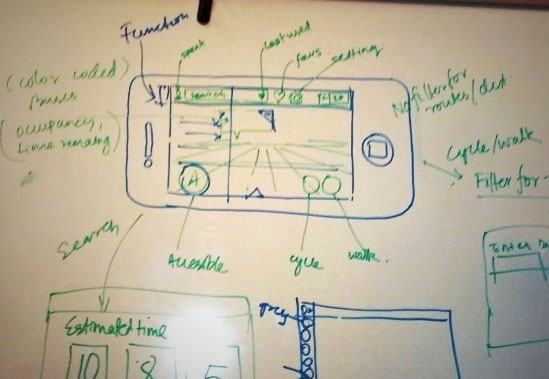 Function
speak
last used
favs
setting
(color coded)
Buses
(occupancy,
time remaining)
search
No filter for
routes/dest
Cycle/walk
Filter for
A
Search
Accessible
cycle
walk.
Estimated time
10 8 5
Enter